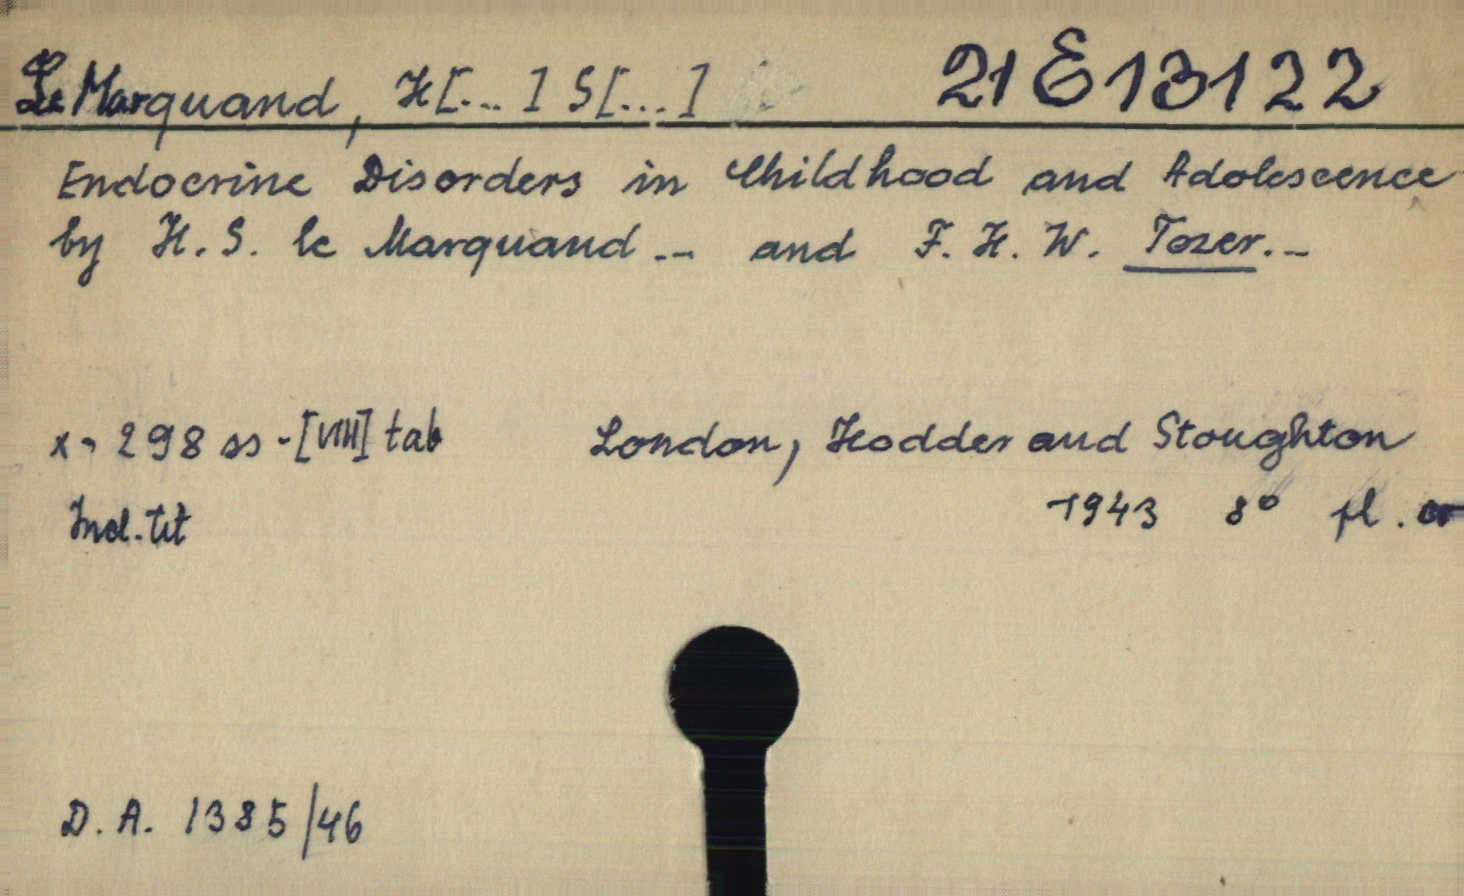 Le Marquand, H[...] S[...] 21 E 13122
Endocrine Disorders in Childhood and Adolescence
by H. S. le Marquand -- and F. H. W. Tozer. --
x, 298 ss - [VIII] tab London, Hodder and Stoughton
Incl. tit 1943 8° pl.
D. A. 1385/46